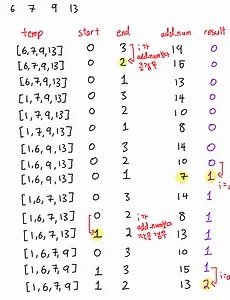 6 7 9 13
temp start end add.num result
[6,7,9,13] 0 3 19 0
[6,7,9,13] 0 2 15 0
[6,7,9,13] 0 1 13 0
[1,7,9,13] 0 3 14 0
[1,7,9,13] 0 2 10 0
[1,7,9,13] 0 1 8 0
[1,6,9,13] 0 3 14 0
[1,6,9,13] 0 2 10 0
[1,6,9,13] 0 1 7 1
[1,6,7,13] 0 3 14 1
[1,6,7,13] 0 2 8 1
[1,6,7,13] 1 2 13 1
[1,6,7,9] 0 3 10 1
[1,6,7,9] 1 3 15 1
[1,6,7,9] 1 2 13 2